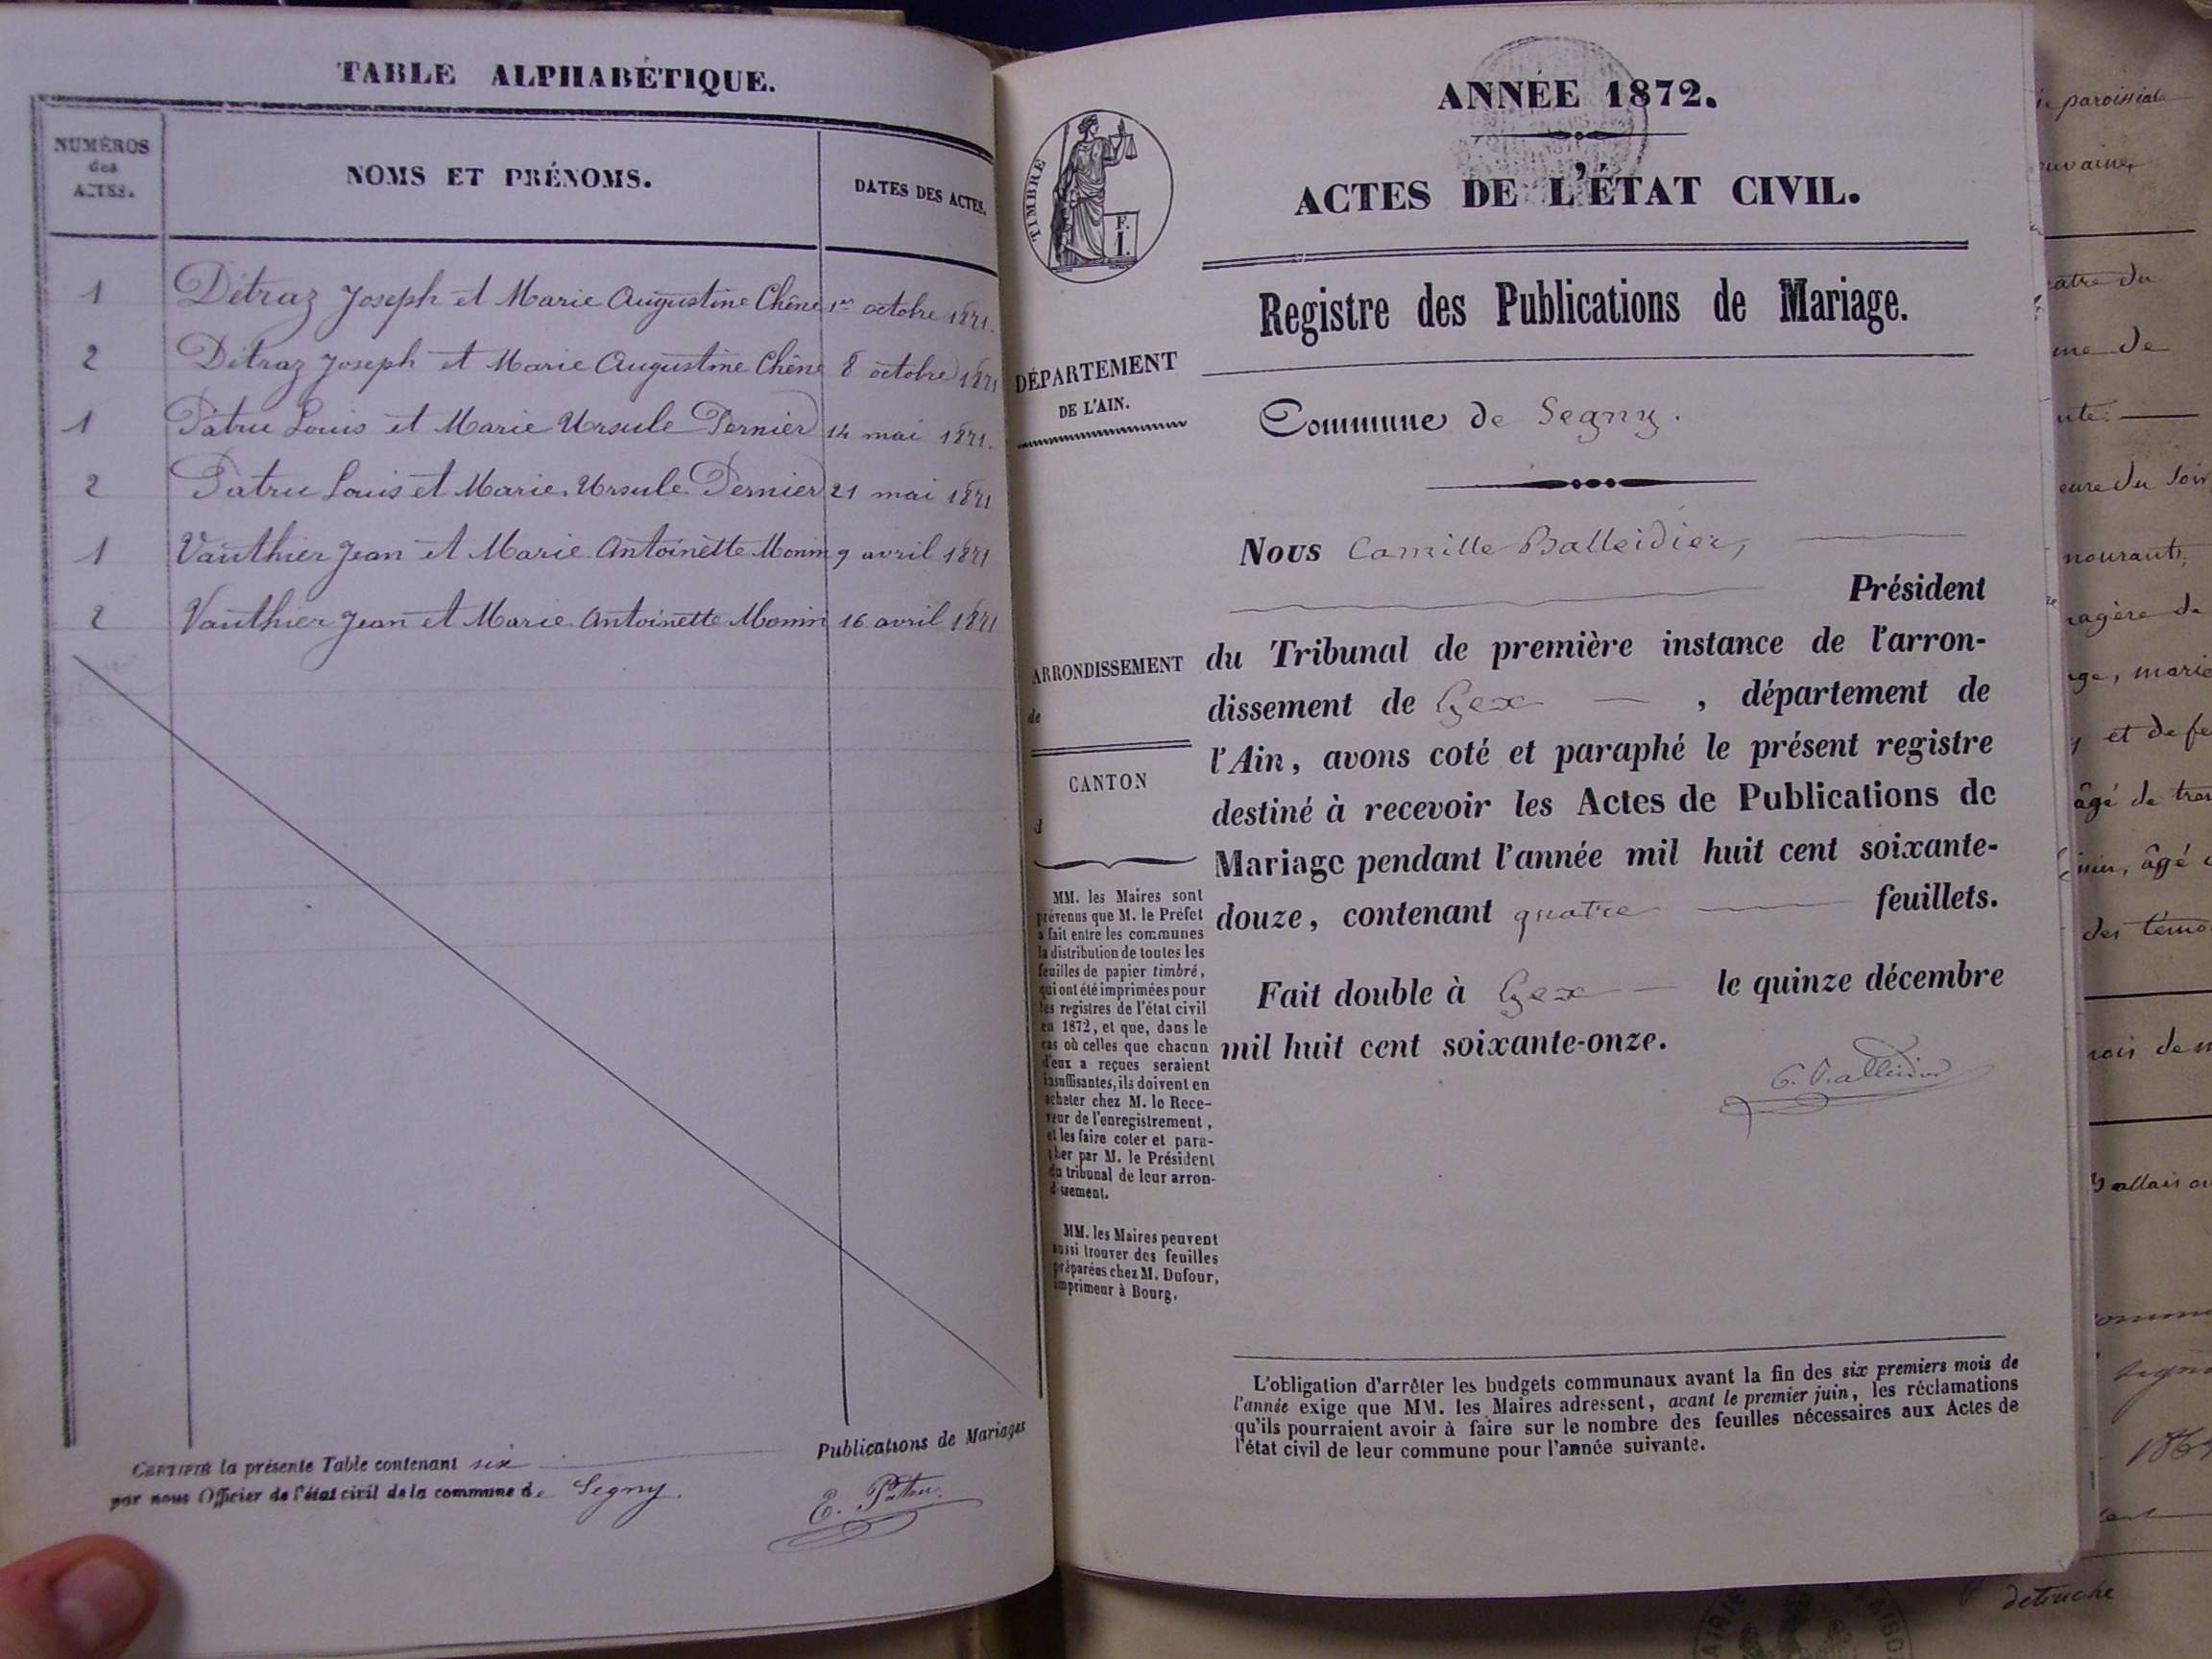 TABLE ALPHABÉTIQUE.
NUMÉROS
des
ACTES.
NOMS ET PRÉNOMS.
DATES DES ACTES.
1 Détraz Joseph et Marie Augustine Chêne 1er octobre 1871.
2 Détraz Joseph et Marie Augustine Chêne 8 octobre 1871
1 Patru Louis et Marie Ursule Pernier 14 mai 1871.
2 Patru Louis et Marie Ursule Pernier 21 mai 1871
1 Vauthier Jean et Marie Antoinette Monin 9 avril 1871
2 Vauthier Jean et Marie Antoinette Monin 16 avril 1871
CERTIFIÉ la présente Table contenant six Publications de Mariages
par nous Officier de l'état civil de la commune de Segny.
E. Patru
ANNÉE 1872.
ACTES DE L'ÉTAT CIVIL.
TIMBRE
F.
I.
Registre des Publications de Mariage.
DÉPARTEMENT
DE L'AIN.
Commune de Segny.
Nous Camille Balleidier,
Président
du Tribunal de première instance de l'arron-
dissement de Gex, département de
l'Ain, avons coté et paraphé le présent registre
destiné à recevoir les Actes de Publications de
Mariage pendant l'année mil huit cent soixante-
douze, contenant quatre feuillets.
Fait double à Gex le quinze décembre
mil huit cent soixante-onze.
C. Balleidier
ARRONDISSEMENT
de
CANTON
d
MM. les Maires sont
prévenus que M. le Préfet
a fait entre les communes
la distribution de toutes les
feuilles de papier timbré,
qui ont été imprimées pour
les registres de l'état civil
en 1872, et que, dans le
cas où celles que chacun
d'eux a reçues seraient
insuffisantes, ils doivent en
acheter chez M. le Rece-
veur de l'enregistrement,
et les faire coter et para-
pher par M. le Président
du tribunal de leur arron-
dissement.
MM. les Maires peuvent
aussi trouver des feuilles
préparées chez M. Dufour,
imprimeur à Bourg.
L'obligation d'arrêter les budgets communaux avant la fin des six premiers mois de
l'année exige que MM. les Maires adressent, avant le premier juin, les réclamations
qu'ils pourraient avoir à faire sur le nombre des feuilles nécessaires aux Actes de
l'état civil de leur commune pour l'année suivante.
paroissiale
me de
eure du soir
mourant,
âgé de
âgé
et
des